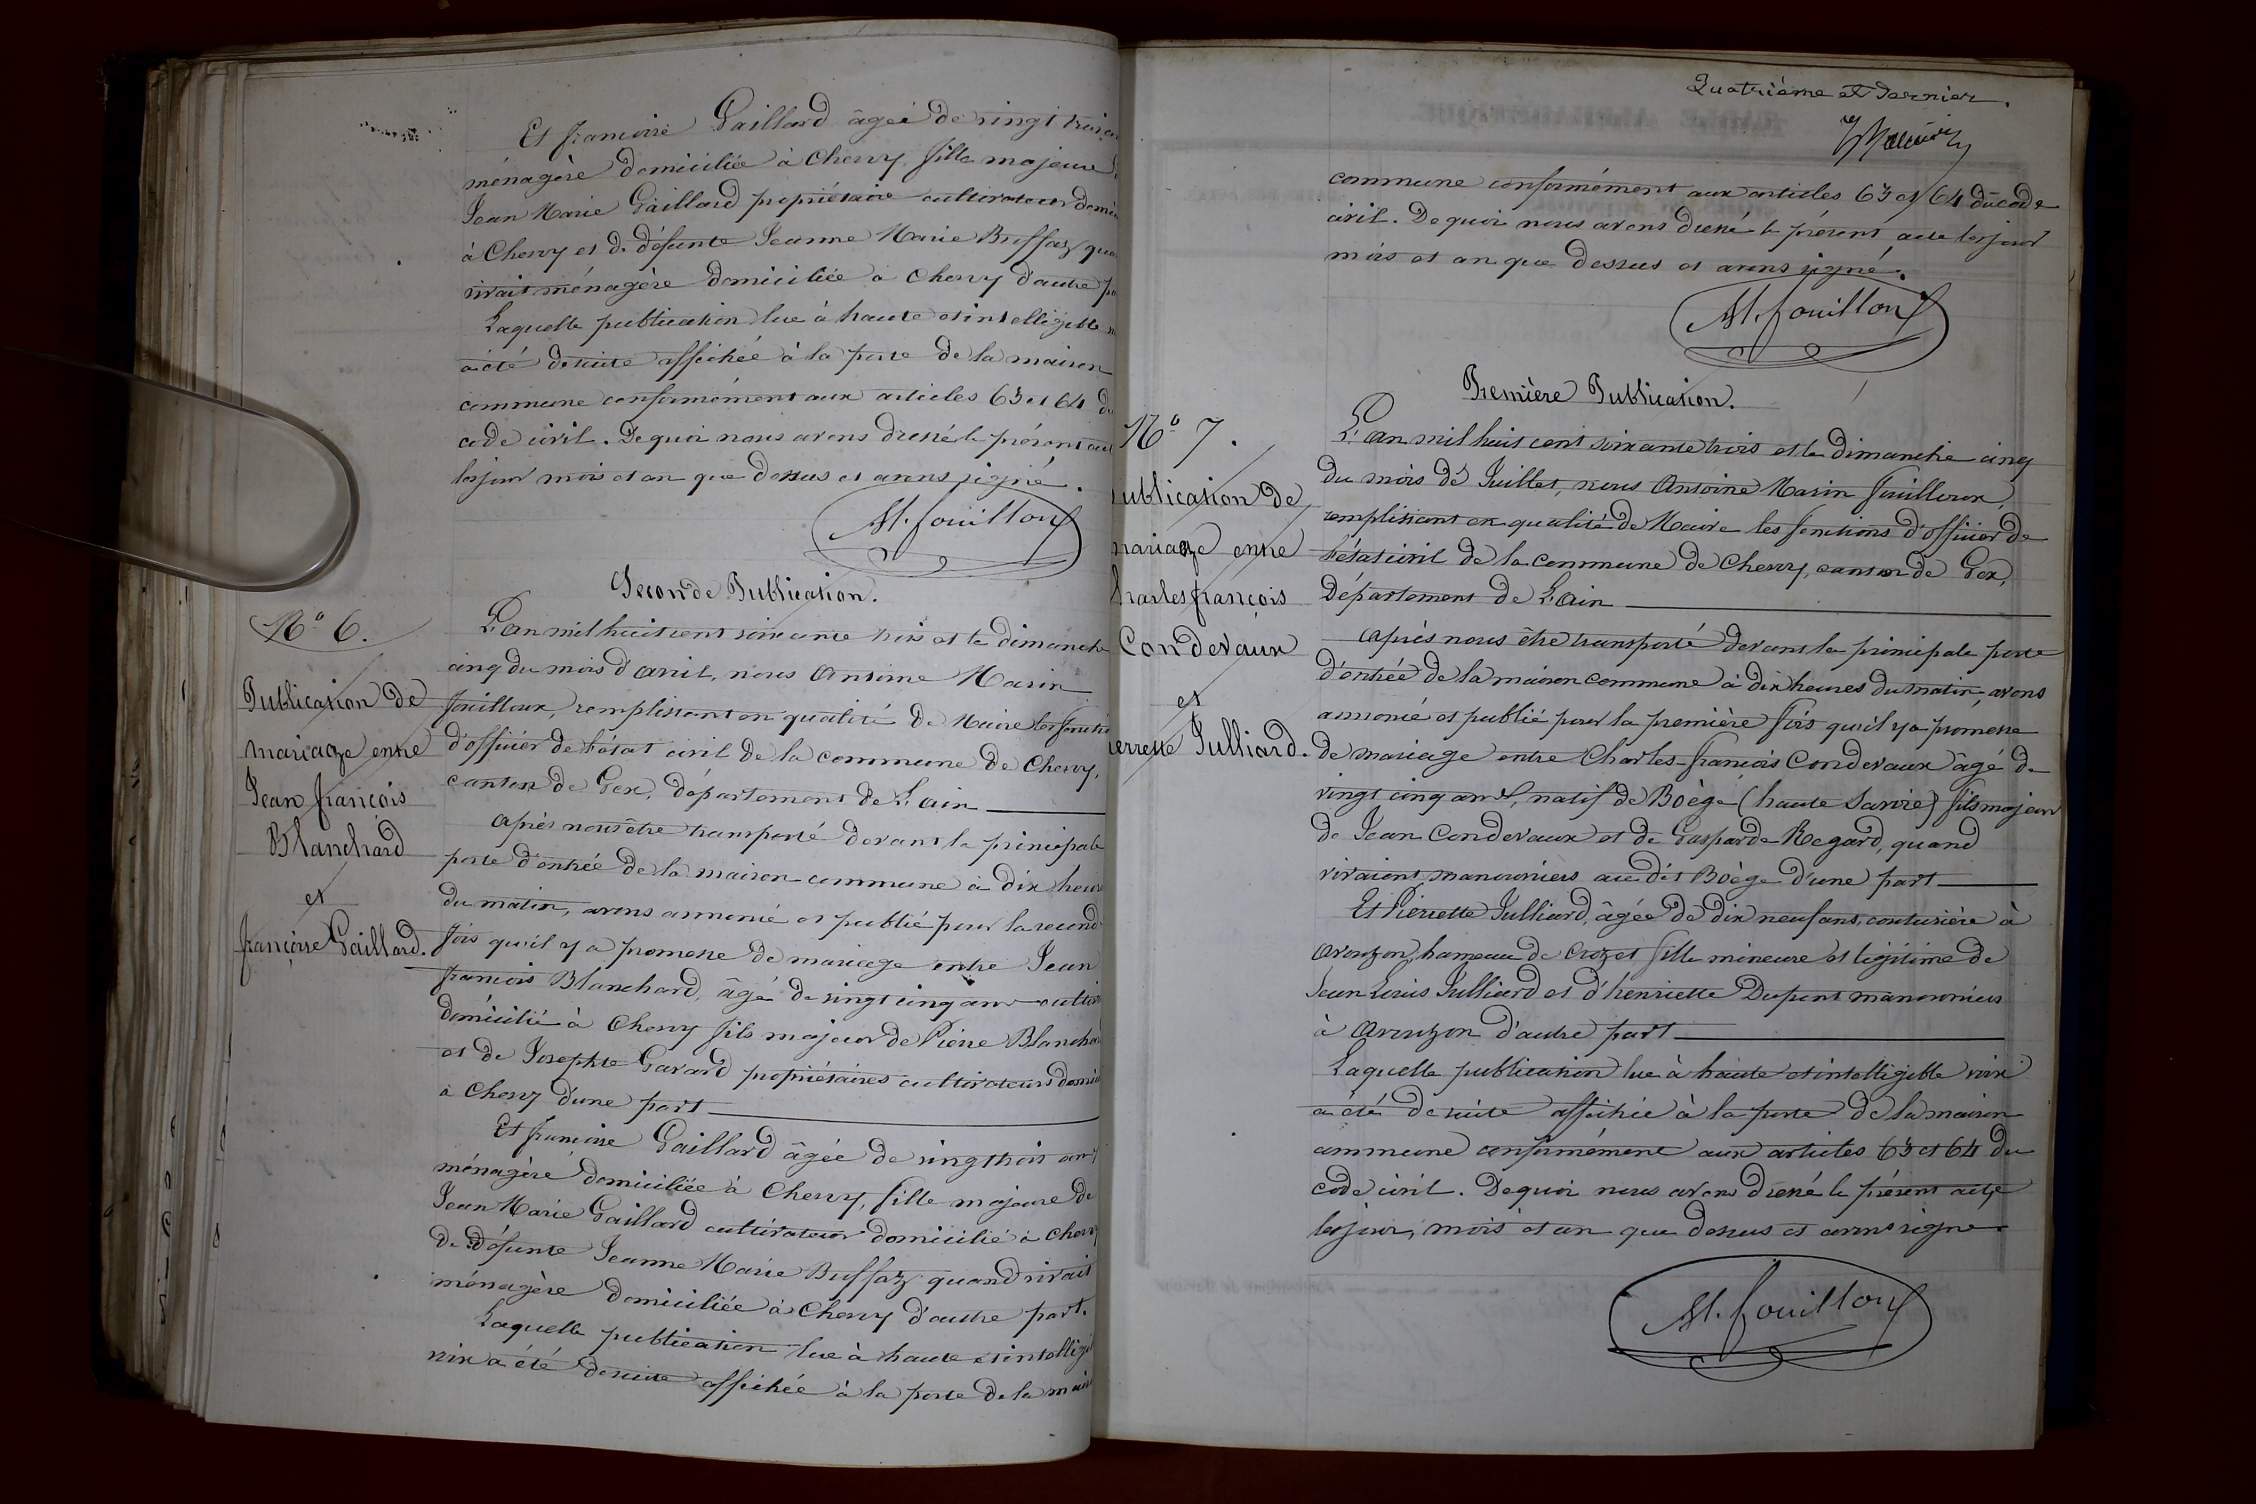 Et françoise Gaillard âgée de vingt trois ans
ménagère domiciliée à Chevry, fille majeure de
Jean Marie Gaillard propriétaire cultivateur domi
à Chevry et de défunte Jeanne Marie Buffaz quan
vivait ménagère domiciliée à Chevry d'autre pa
Laquelle publication lue à haute et intelligible
a été de suite affichée à la porte de la maison
commune conformément aux articles 63 et 64 du
code civil. De quoi nous avons dressé le présent
les jour mois et an que dessus et avons signé.
M. fouilloux
Seconde Publication.
N° 6.
Publication de
mariage entre
Jean françois
Blanchard
et
françoise Gaillard.
L'an mil huit cent soixante trois et le dimanche
cinq du mois d'avril, nous Antoine Marin
fouilloux, remplissant en qualité de Maire les foncti
d'officier de l'état civil de la commune de Chevry,
canton de Gex, département de L'ain
après nous être transporté devant la principale
porte d'entrée de la maison commune à dix heures
du matin, avons annoncé et publié pour la seconde
fois qu'il y a promesse de mariage entre Jean
françois Blanchard, âgé de vingt cinq ans cultiv
domicilié à Chevry fils majeur de Pierre Blanchard
et de Josephte Gavard propriétaires cultivateurs domi
à Chevry d'une part
Et françoise Gaillard âgée de vingt trois ans
ménagère domiciliée à Chevry, fille majeure de
Jean Marie Gaillard cultivateur domicilié à Chevry
de défunte Jeanne Marie Buffaz quand vivait
ménagère domiciliée à Chevry d'autre part.
Laquelle publication lue à haute et intelligi
voix a été de suite affichée à la porte de la mais
Quatrième et dernier.
commune conformément aux articles 63 et 64 du code
civil. De quoi nous avons dressé le présent acte les jour
mois et an que dessus et avons signé.
M. fouilloux
Première Publication.
N° 7.
ublication de
mariage entre
Charles françois
Condevaux
et
ierrette Julliard.
L'an mil huit cent soixante trois et le dimanche cinq
du mois de Juillet, nous Antoine Marin fouilloux,
remplissant en qualité de Maire les fonctions d'officier de
l'état civil de la commune de Chevry, canton de Gex,
département de L'ain
après nous être transporté devant la principale porte
d'entrée de la maison commune à dix heures du matin, avons
annoncé et publié pour la première fois qu'il y a promesse
de mariage entre Charles-françois Condevaux âgé de
vingt cinq ans, natif de Boège (haute Savoie) fils majeur
de Jean Condevaux et de Gasparde Regard, quand
vivaient, manouvriers au dit Boège d'une part
Et Pierrette Julliard, âgée de dix neuf ans, couturière à
avouzon, hameau de Crozet fille mineure et légitime de
Jean Louis Julliard et d'henriette Dupont manouvriers
à avouzon d'autre part
Laquelle publication lue à haute et intelligible voix
a été de suite affichée à la porte de la maison
commune conformément aux articles 63 et 64 du
code civil. De quoi nous avons dressé le présent acte
les jour, mois et an que dessus et avons signé.
M. fouilloux